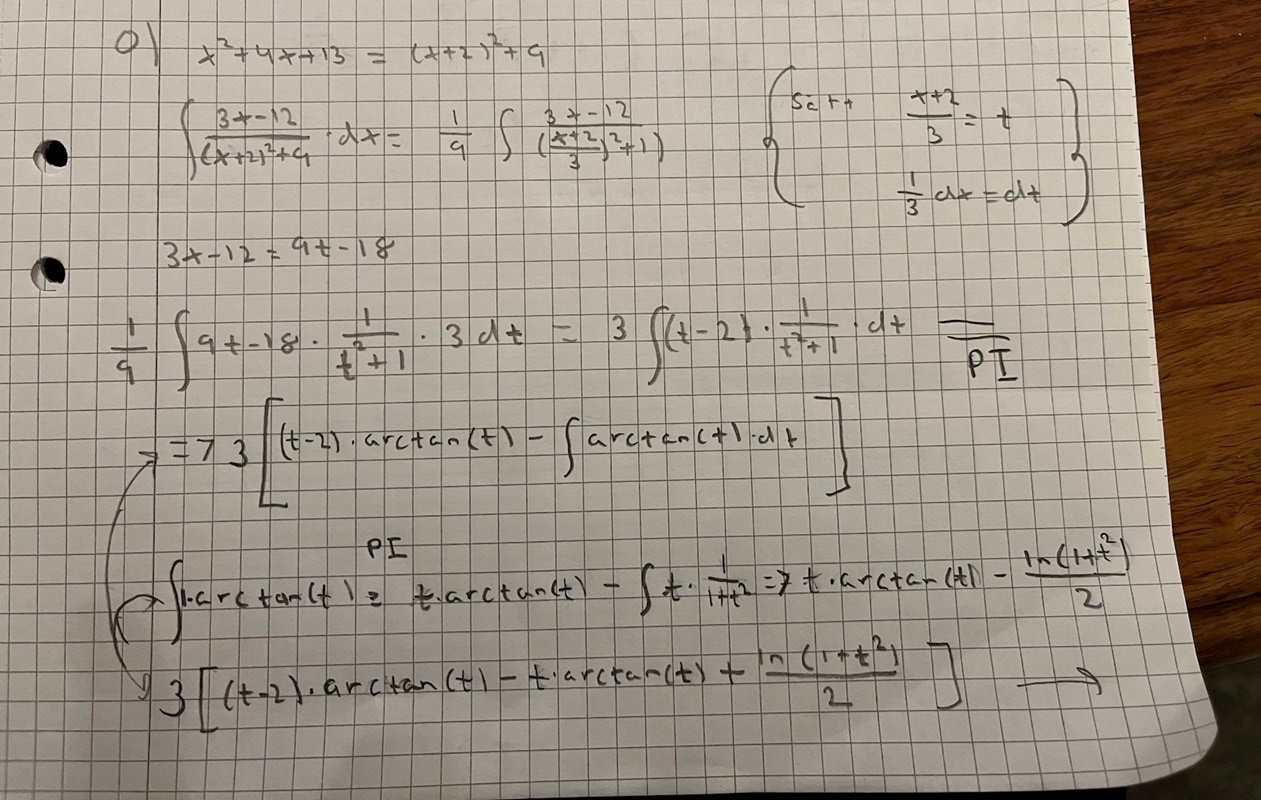 o) x²+4x+13 = (x+2)²+9
∫ (3x-12)/((x+2)²+9) · dx = 1/9 ∫ (3x-12)/(((x+2)/3)²+1) { Sätt (x+2)/3 = t
1/3 dx = dt }
3x-12 = 9t-18
1/9 ∫ 9t-18 · 1/(t²+1) · 3 dt = 3 ∫ (t-2) · 1/(t²+1) · dt = PI
=> 3 [ (t-2) · arctan(t) - ∫ arctan(t) · dt ]
PI
∫ 1·arctan(t) = t·arctan(t) - ∫ t · 1/(1+t²) => t·arctan(t) - ln(1+t²)/2
3 [ (t-2) · arctan(t) - t·arctan(t) + ln(1+t²)/2 ] →